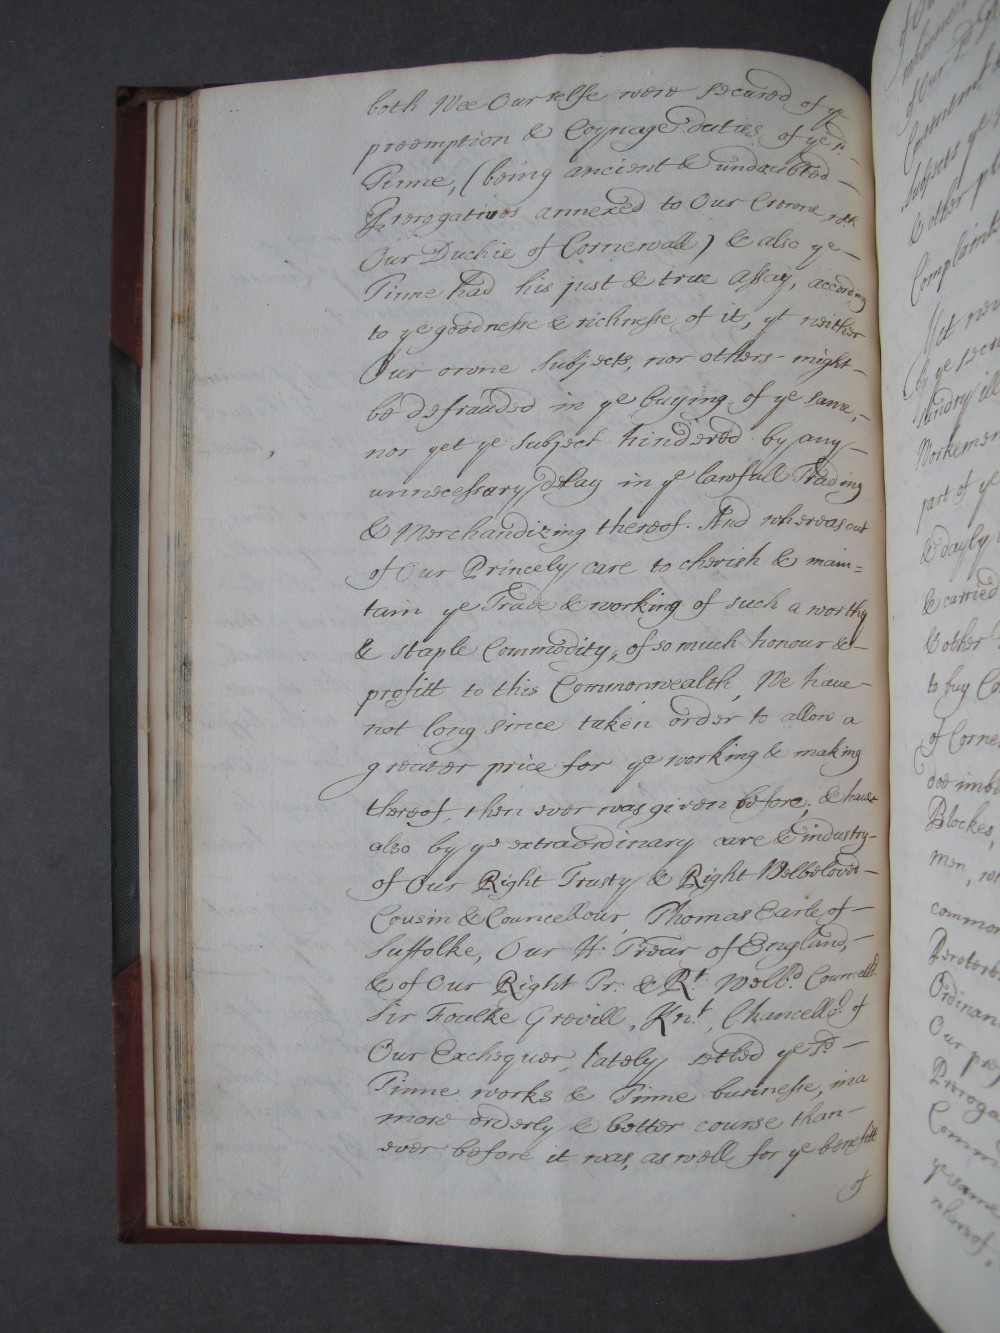 both Wee Our selfe were secured of ye
preemption & Coynage duties of ye sd.
Tinne, (being ancient & undoubted
Prerogatives annexed to Our Crowne, &
Our Duchie of Cornewall) & also ye
Tinne had his just & true Assay, according
to ye goodnesse & richnesse of it, yt neither
Our owne Subjects, nor others might
be defrauded in ye buying of ye same,
nor yet ye Subject hindered by any
unnecessary delay in ye lawfull Trading
& Merchandizing thereof. And whereas out
of Our Princely care to cherish & main=
tain ye Trade & working of such a worthy
& staple Commodity, of so much honour &
profitt to this Commonwealth, We have
not long since taken order to allow a
greater price for ye working & making
thereof, then ever was given before, & have
also by ye extraordinary care & industry
of Our Right Trusty & Right Welbeloved
Cousin & Councellour, Thomas Earle of
Suffolke, Our H. Trear of England,
& of Our Right Tr: & Rt. Welbd. Councellr.
Sir Foulke Grevill, Knt., Chancellr. of
Our Exchequer, lately setled ye sd.
Tinne works & Tinne businesse, in a
more orderly & better course than
ever before it was, as well for ye benefitt
of
Complaints
Yet
by ye
sundry
Workemen
part of ye
& dayly
& carried
& other
to buy
of Corne
Blockes,
men,
common
Ordinan
Our
Preroga
Comm
ye same
whereof,